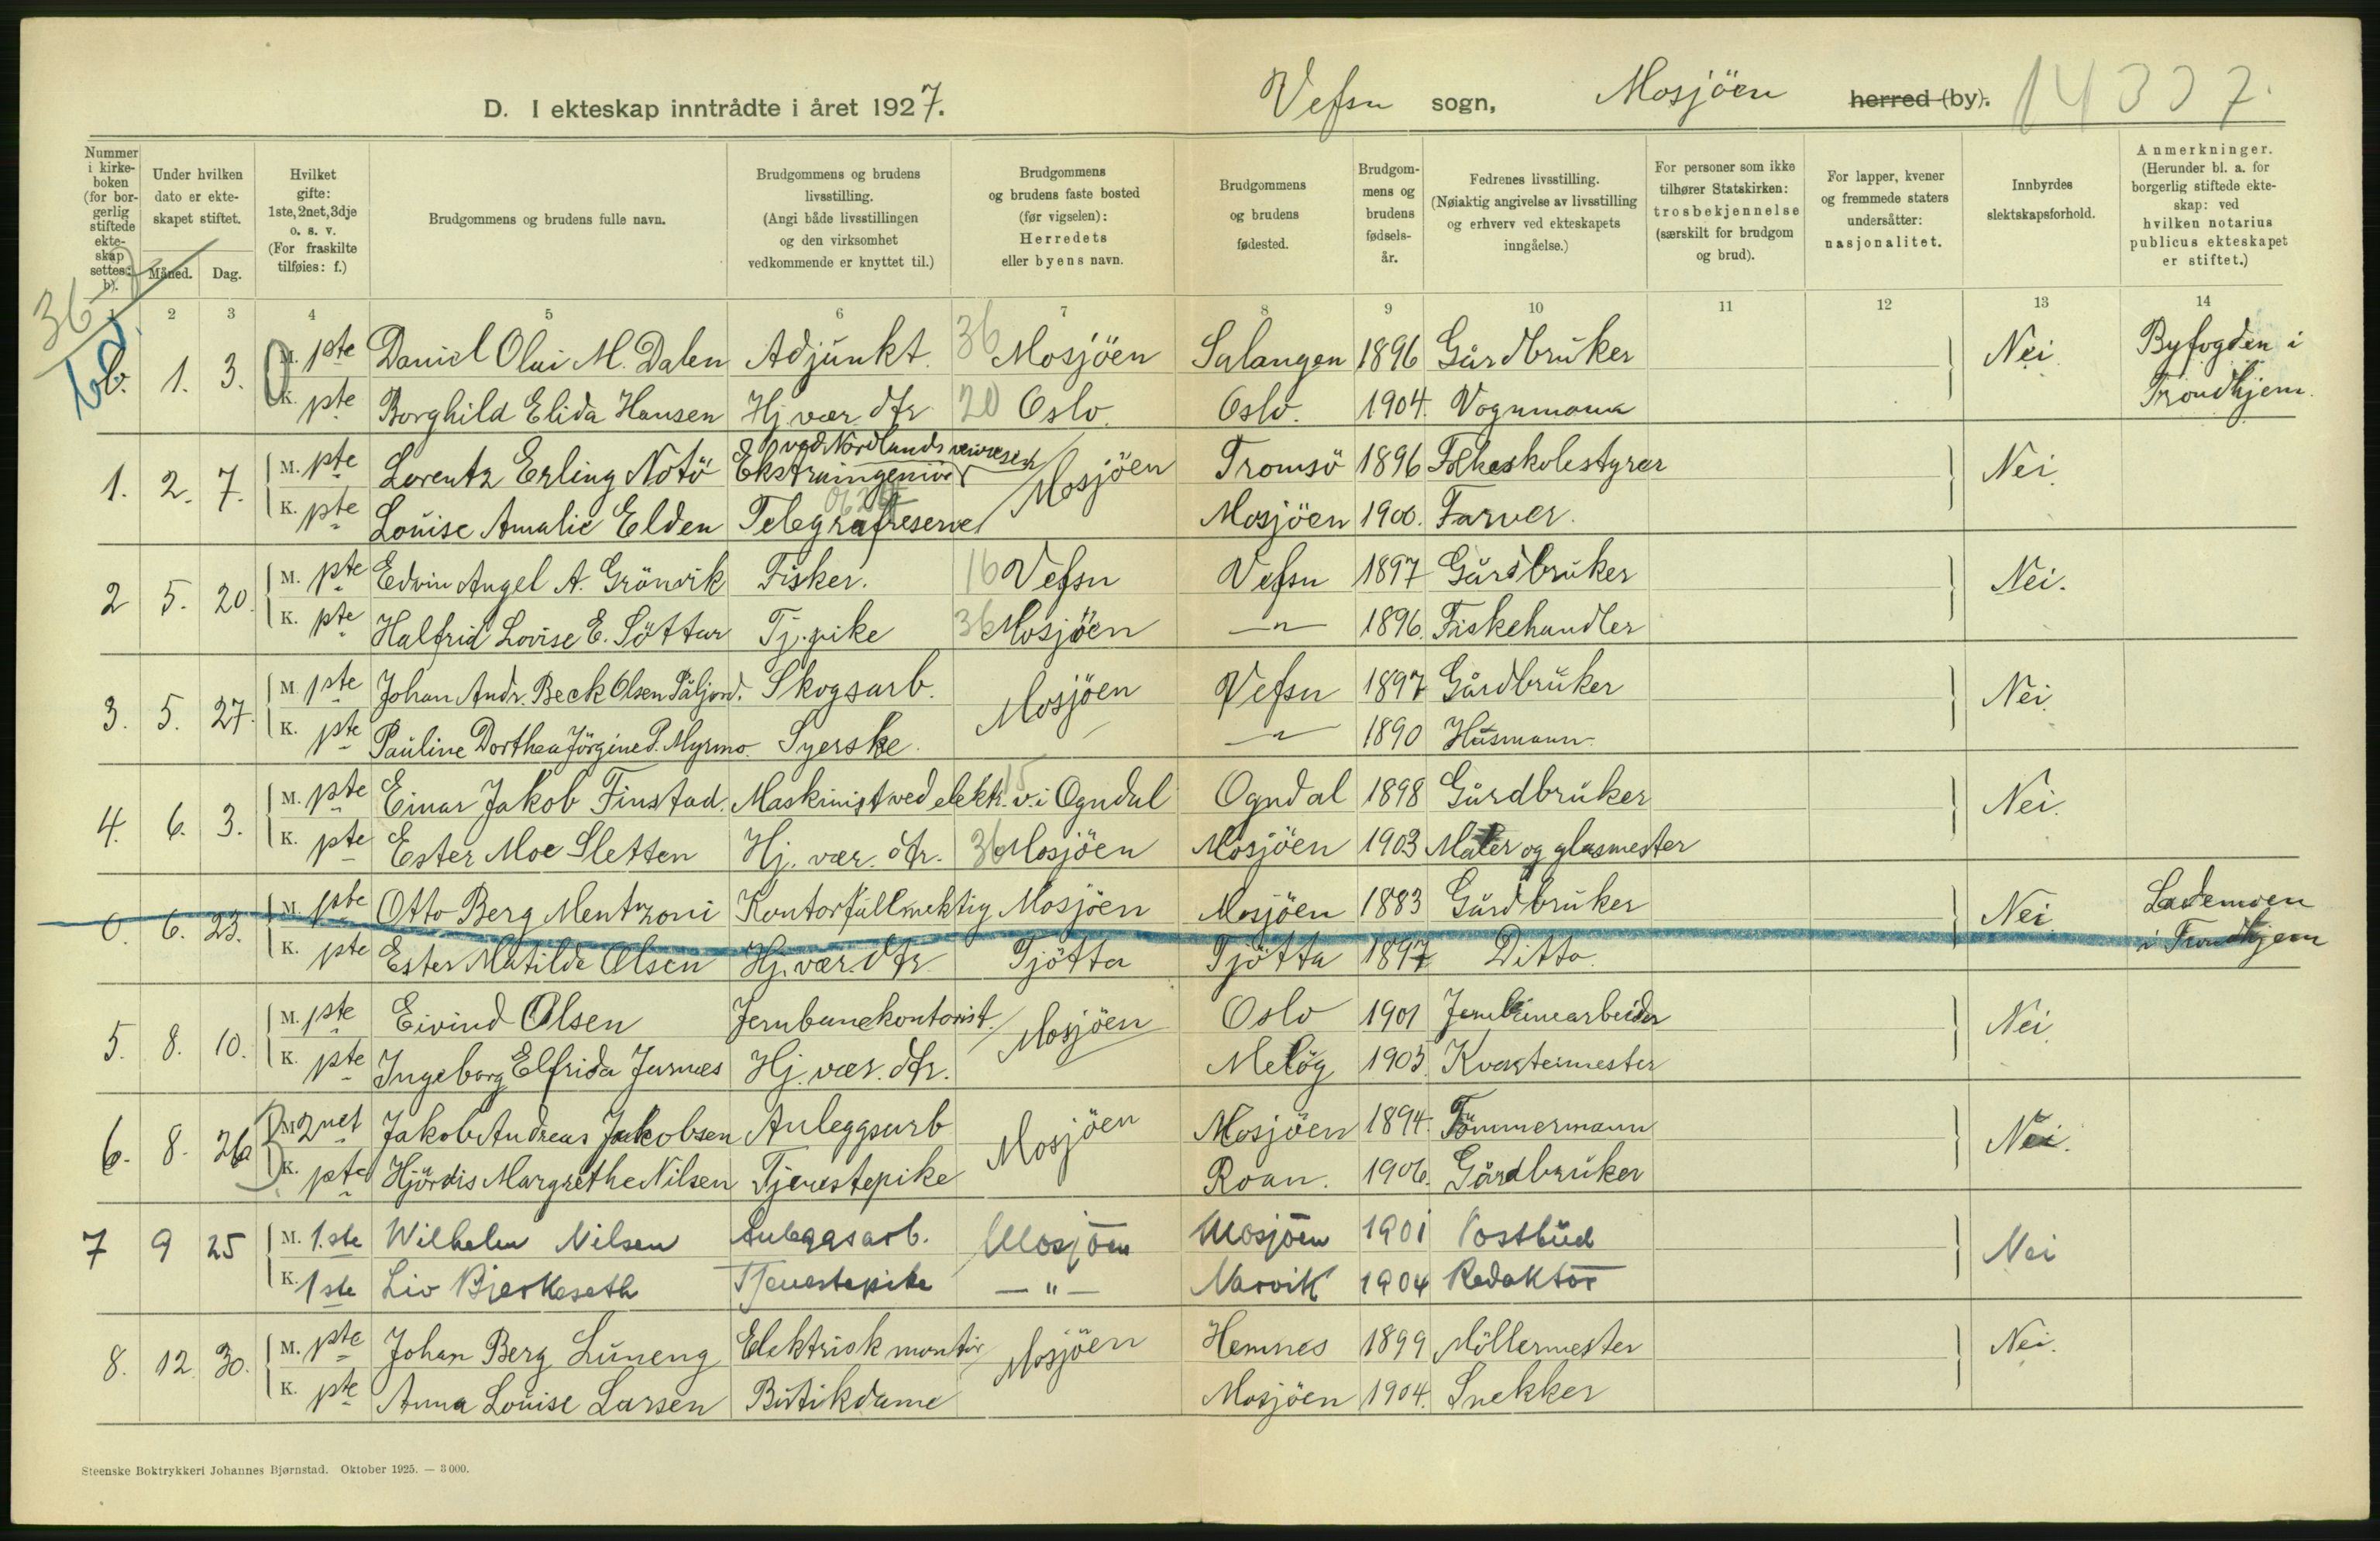 D. I ekteskap inntrådte i året 1927.
Vefsn sogn, Mosjöen herred (by). 14337.
Nummer i kirkeboken (for borgerlig stiftede ekteskap settes: b).
Under hvilken dato er ekteskapet stiftet.
Måned. Dag.
Hvilket gifte: 1ste, 2net, 3dje o. s. v. (For fraskilte tilføies: f.)
Brudgommens og brudens fulle navn.
Brudgommens og brudens livsstilling. (Angi både livsstillingen og den virksomhet vedkommende er knyttet til.)
Brudgommens og brudens faste bosted (før vigselen): Herredets eller byens navn.
Brudgommens og brudens fødested.
Brudgommens og brudens fødselsår.
Fedrenes livsstilling. (Nøiaktig angivelse av livsstilling og erhverv ved ekteskapets inngåelse.)
For personer som ikke tilhører Statskirken: trosbekjennelse (særskilt for brudgom og brud).
For lapper, kvener og fremmede staters undersåtter: nasjonalitet.
Innbyrdes slektskapsforhold.
Anmerkninger. (Herunder bl. a. for borgerlig stiftede ekteskap: ved hvilken notarius publicus ekteskapet er stiftet.)
1 2 3 4 5 6 7 8 9 10 11 12 13 14
b. 1. 3. M. 1ste Daniel Olai M. Dalen Adjunkt. 36 Mosjöen Salangen 1896 Gårdbruker Nei Byfogden i
K. 1ste Borghild Elida Hansen Hj. vær. dtr. 20 Oslo. Oslo. 1904. Vognmann Trondhjem.
1. 2. 7. M. 1ste Lorentz Erling Notö Ekstraingeniör ved Nordlands veivesen Mosjöen Tromsö 1896 Folkeskolestyrer Nei.
K. 1ste Louise Amalie Elden Telegrafreserve Mosjöen 1900. Farver.
2 5. 20. M. 1ste Edvin Angel A. Grönvik Fisker. 16 Vefsn Vefsn 1897 Gårdbruker Nei.
K. 1ste Halfrid Lovise E. Söttar Tj. pike 36 Mosjöen — " — 1896. Fiskehandler
3. 5. 27. M. 1ste Johan Andr. Beck Olsen Påljord. Skogsarb. Mosjöen Vefsn 1897 Gårdbruker Nei.
K. 1ste Pauline Dorthea Jörgine P. Myrmo. Syerske. — " — 1890 Husmann.
4. 6. 3. M. 1ste Einar Jakob Finstad. Maskinist ved elektr. v. i Ogndal 15 Ogndal 1898 Gårdbruker Nei.
K. 1ste Ester Moe Sletten Hj. vær. dtr. 36 Mosjöen Mosjöen 1903 Maler og glasmester
0. 6. 23. M. 1ste Otto Berg Mentzoni Kontorfullmektig Mosjöen Mosjöen 1883 Gårdbruker Nei. Lademoen
K. 1ste Ester Matilde Olsen Hj. vær. dtr. Tjötta Tjötta 1897 Ditto. i Trondhjem
5. 8. 10. M. 1ste Eivind Olsen Jernbanekontorist. Mosjöen Oslo 1901 Jernbanearbeider Nei.
K. 1ste Ingeborg Elfrida Jarnæs Hj. vær. dtr. Melög 1903. Kvartermester
6. 8. 26. M. 2net Jakob Andreas Jakobsen Anleggsarb Mosjöen Mosjöen 1894. Tömmermann Nei.
K. 1ste Hjördis Margrethe Nilsen Tjenestepike Roan. 1906. Gårdbruker
7 9 25 M. 1.ste Wilhelm Nilsen Anleggsarb. Mosjöen Mosjöen 1901 Postbud Nei
K. 1ste Liv Bjerkeseth Tjenestepike — " — Narvik 1904 Redaktör
8. 12. 30. M. 1ste Johan Berg Luneng Elektrisk montör Mosjöen Hemnes 1899 Möllermester Nei.
K. 1ste Anna Louise Larsen Butikdame Mosjöen 1904. Snekker
Steenske Boktrykkeri Johannes Bjørnstad. Oktober 1925. — 3000.